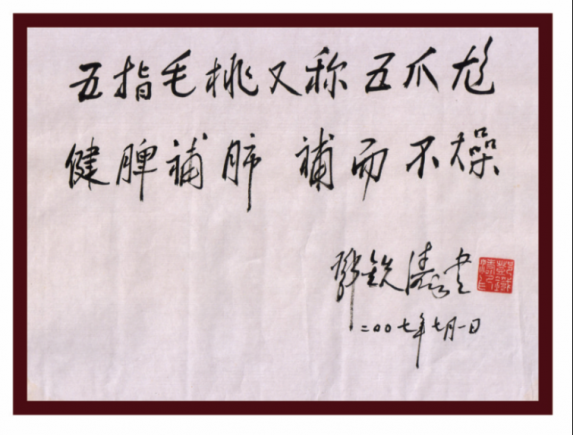 五指毛桃又称五爪尨
健脾補肺 補而不燥
鄧铁涛书
二〇〇七年七月一日